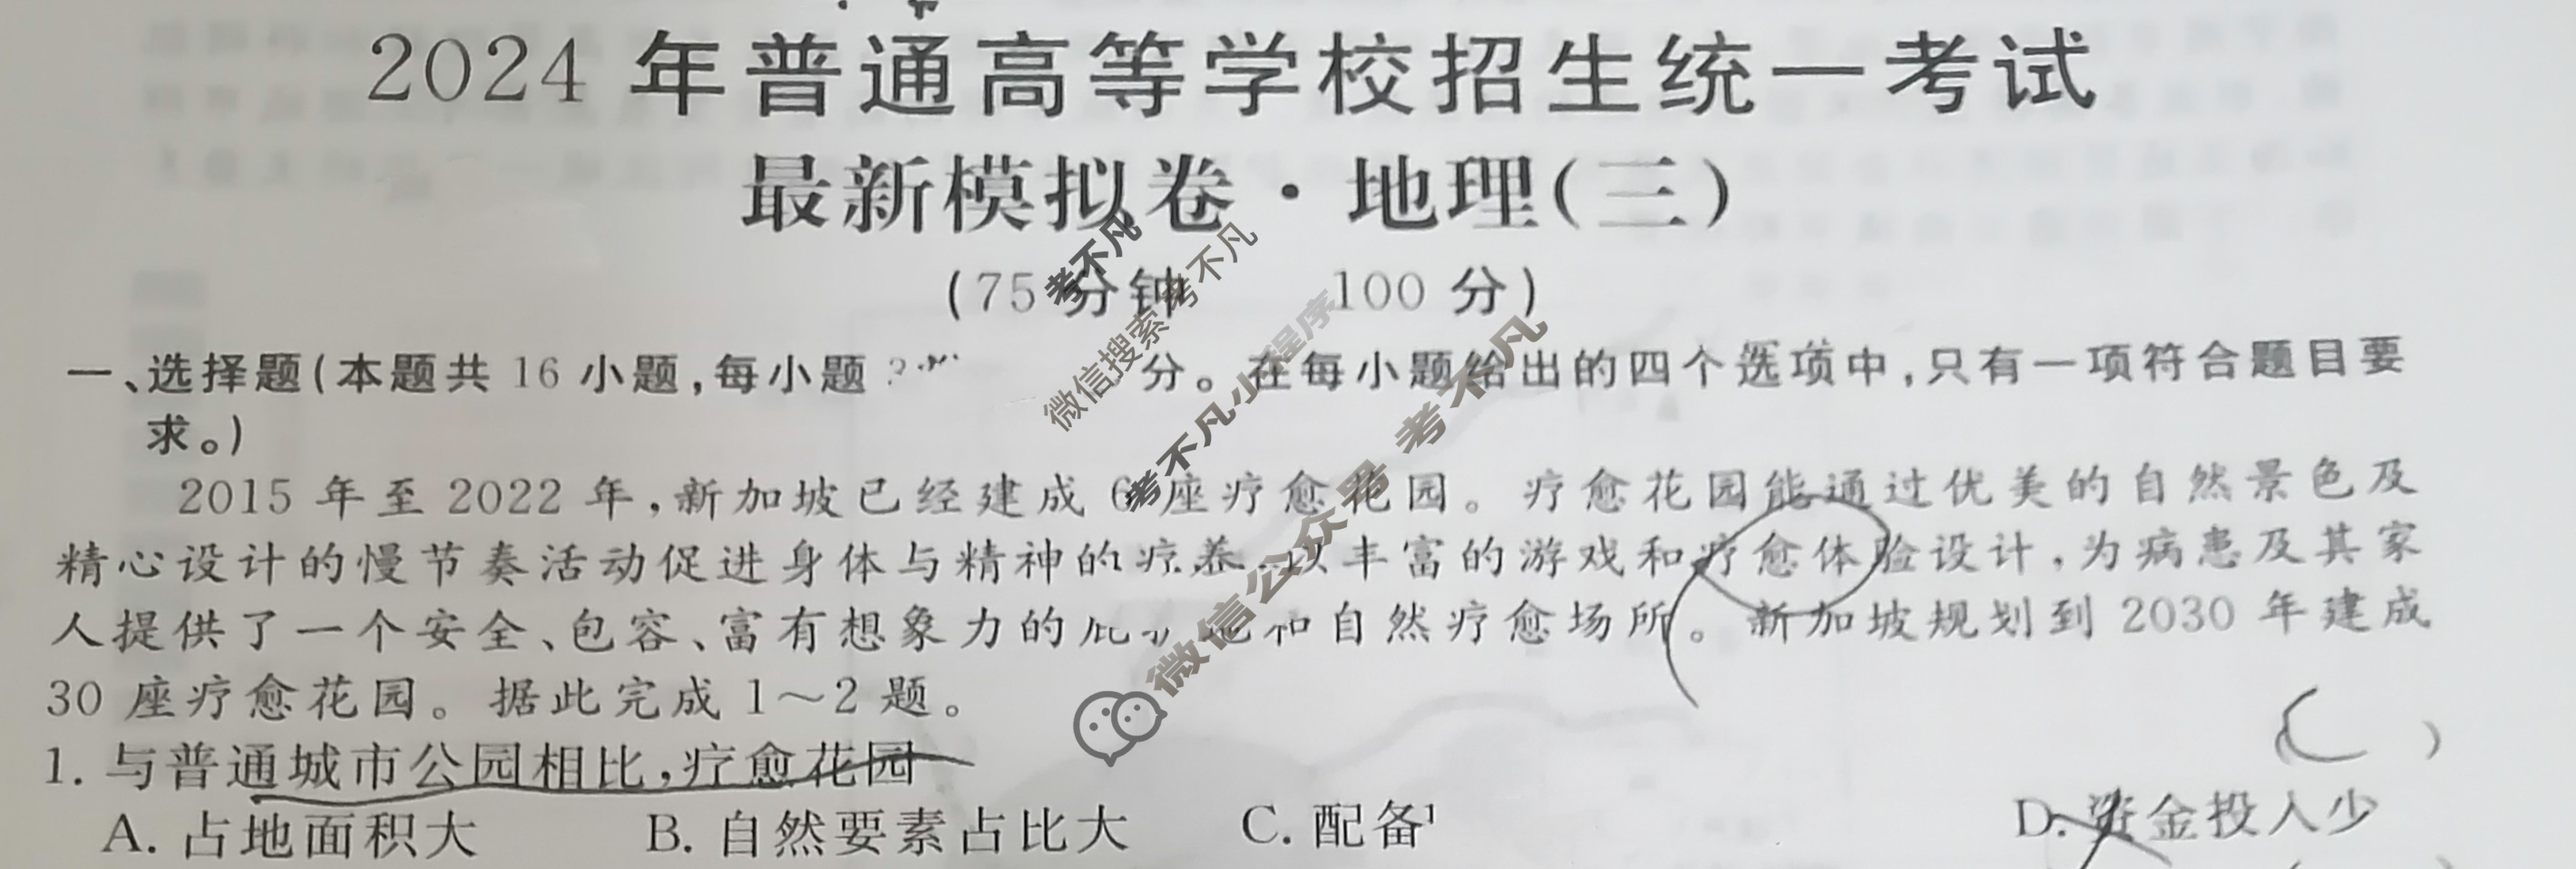 2024 年普通高等学校招生统一考试
最新模拟卷·地理(三)
(75 分钟 100 分)
一、选择题(本题共 16 小题,每小题 分。在每小题给出的四个选项中,只有一项符合题目要
求。)
2015 年至 2022 年,新加坡已经建成 6 座疗愈花园。疗愈花园能通过优美的自然景色及
精心设计的慢节奏活动促进身体与精神的疗养 以丰富的游戏和疗愈体验设计,为病患及其家
人提供了一个安全、包容、富有想象力的 和自然疗愈场所。新加坡规划到 2030 年建成
30 座疗愈花园。据此完成 1～2 题。
1. 与普通城市公园相比,疗愈花园 ( C )
A. 占地面积大 B. 自然要素占比大 C. 配备 D. 资金投入少
考不凡
微信搜索 考不凡
考不凡小程序
微信公众号 考不凡